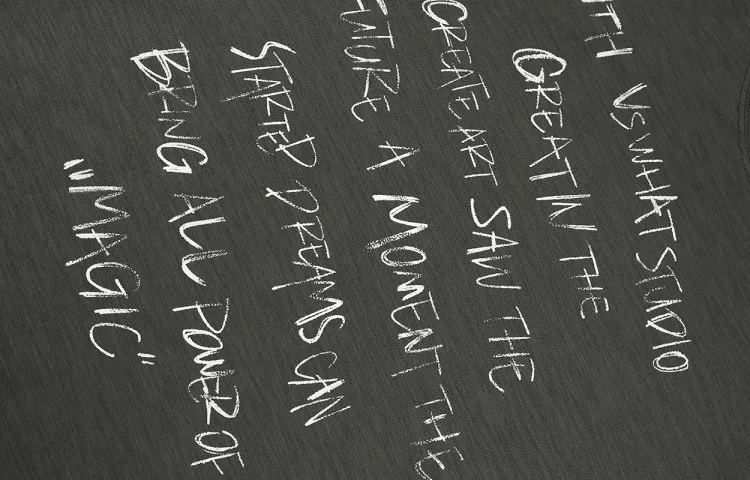 TH VSWHATSTUDIO
GREAT IN THE
CREATE ART SAW THE
FUTURE A MOMENT THE
STARTED DREAMS CAN
BRING ALL POWER OF
"MAGIC"